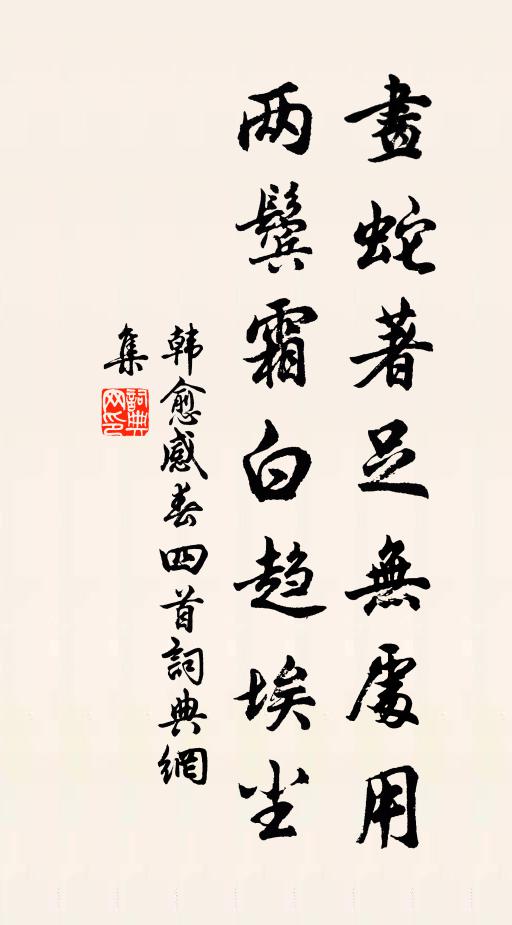 畫蛇著足無處用
两鬢霜白趋埃尘
韩愈感春四首詞典網
集
詞典
网印